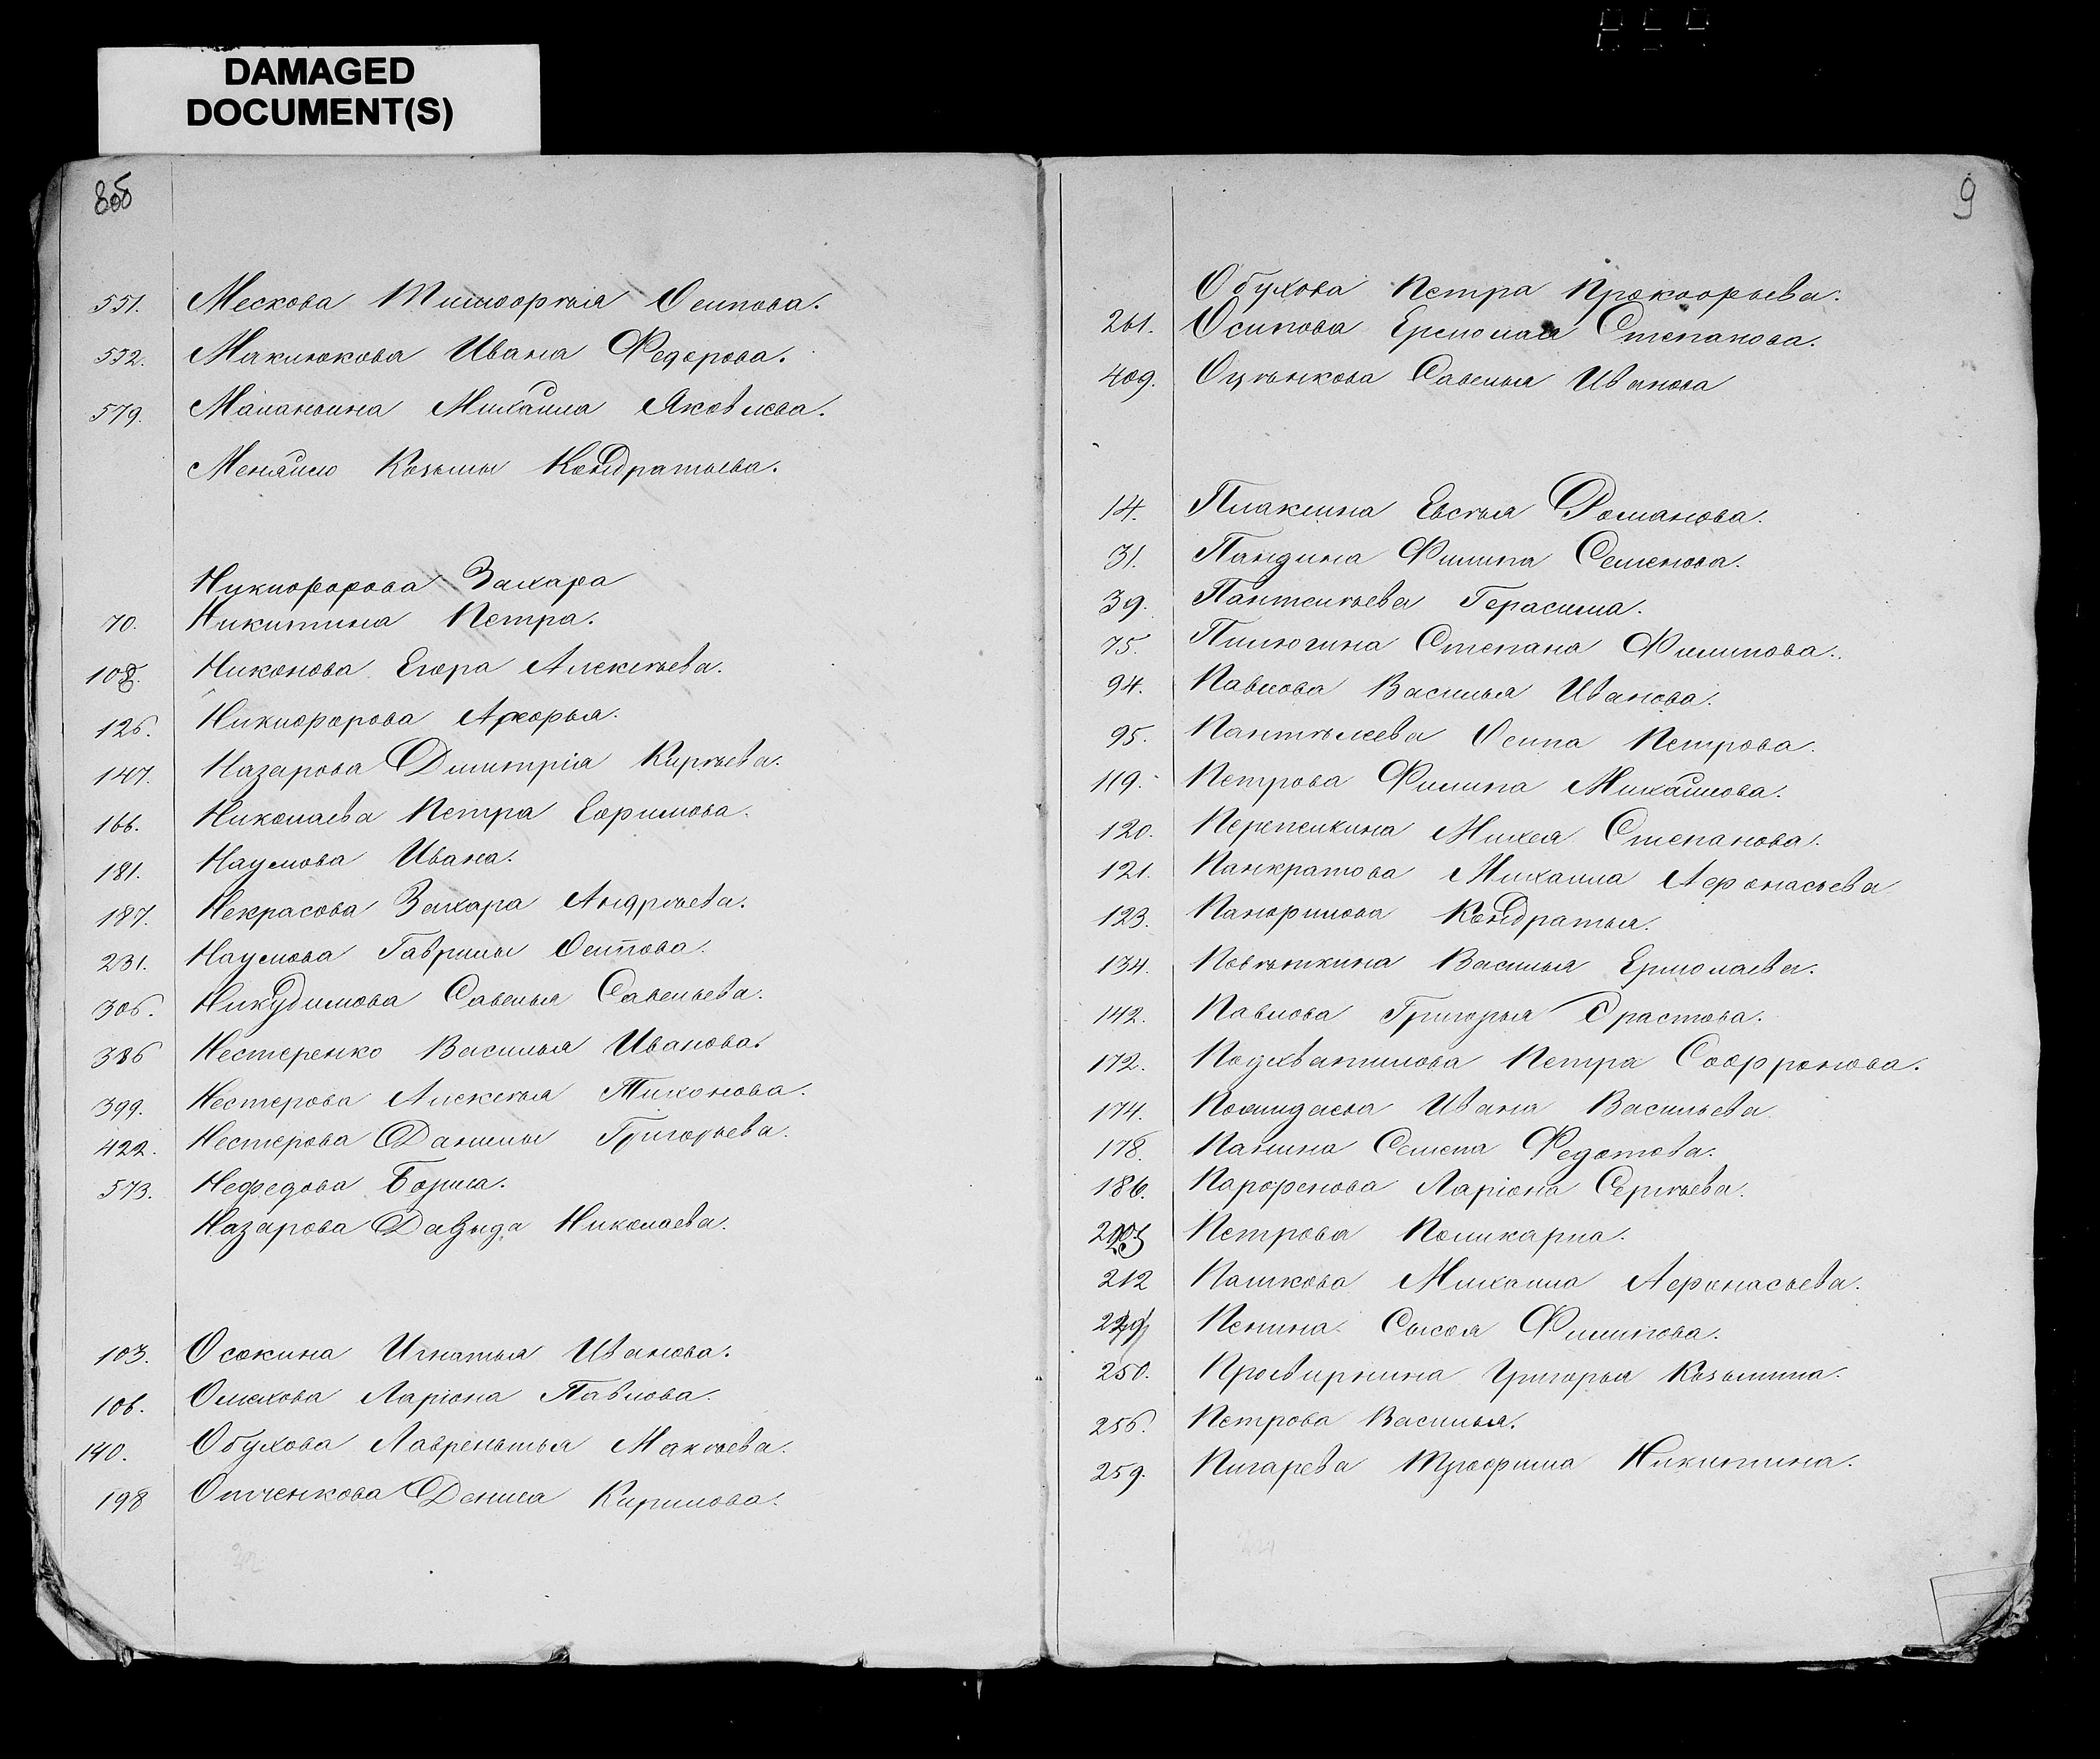 DAMAGED
DOCUMENT(S)
8об
551. Мескова Тимофѣя Осипова.
552. Маклюкова Ивана Федорова.
579. Маланьина Михайла Яковлева.
Менайло Козьмы Кондратьева.
Никифорова Захара
70. Никитина Петра.
108. Никонова Егора Алексѣева.
126. Никифорова
147. Назарова Димитрія Кирѣева.
166. Николаева Петра Ефимова.
181. Наумова Ивана.
187. Некрасова Захара Андрѣева.
231. Наумова Гаврилы Осипова.
306. Никудимова Савелья Савельева.
386 Нестеренко Василья Иванова.
399. Нестерова Алексѣя Тихонова.
422. Нестерова Данилы Григорьева.
573. Нефедова Бориса.
Назарова Давыда Николаева.
103. Осокина Игнатья Иванова.
106. Омехова Ларіона Павлова.
140. Обухова Лаврентья Макѣева.
198 Отченкова Дениса Кирилова.
9
Обухова Петра Прокофьева.
261. Осипова Ермолая Степанова.
409. Савелья Иванова
14. Плаксина Евсѣя Романова.
31. Пандина Филипа Семенова.
39. Пантелѣева Герасима.
75. Пилюгина Степана Филипова.
94. Павлова Василья Иванова.
95. Пантѣлеева Осипа Петрова.
119. Петрова Филипа Михайлова.
120. Перепелкина Михея Степанова.
121. Панкратова Михаила Афонасьева
123. Панфилова Кондратья.
134. Повѣткина Василья Ермолаева.
142. Павлова Григорья Ерастова.
172. Подхватилова Петра Софронова.
174. Ивана Васильева
178. Панина Семена Федотова.
186. Парфенова Ларіона Сергѣева.
Петрова Поликарпа.
212 Пашкова Михаила Афонасьева.
Пенина Сысоя Филипова.
250. Просвирнина Григорья Козьмина.
256. Петрова Василья.
259. Пигарева Трофима Никитина.